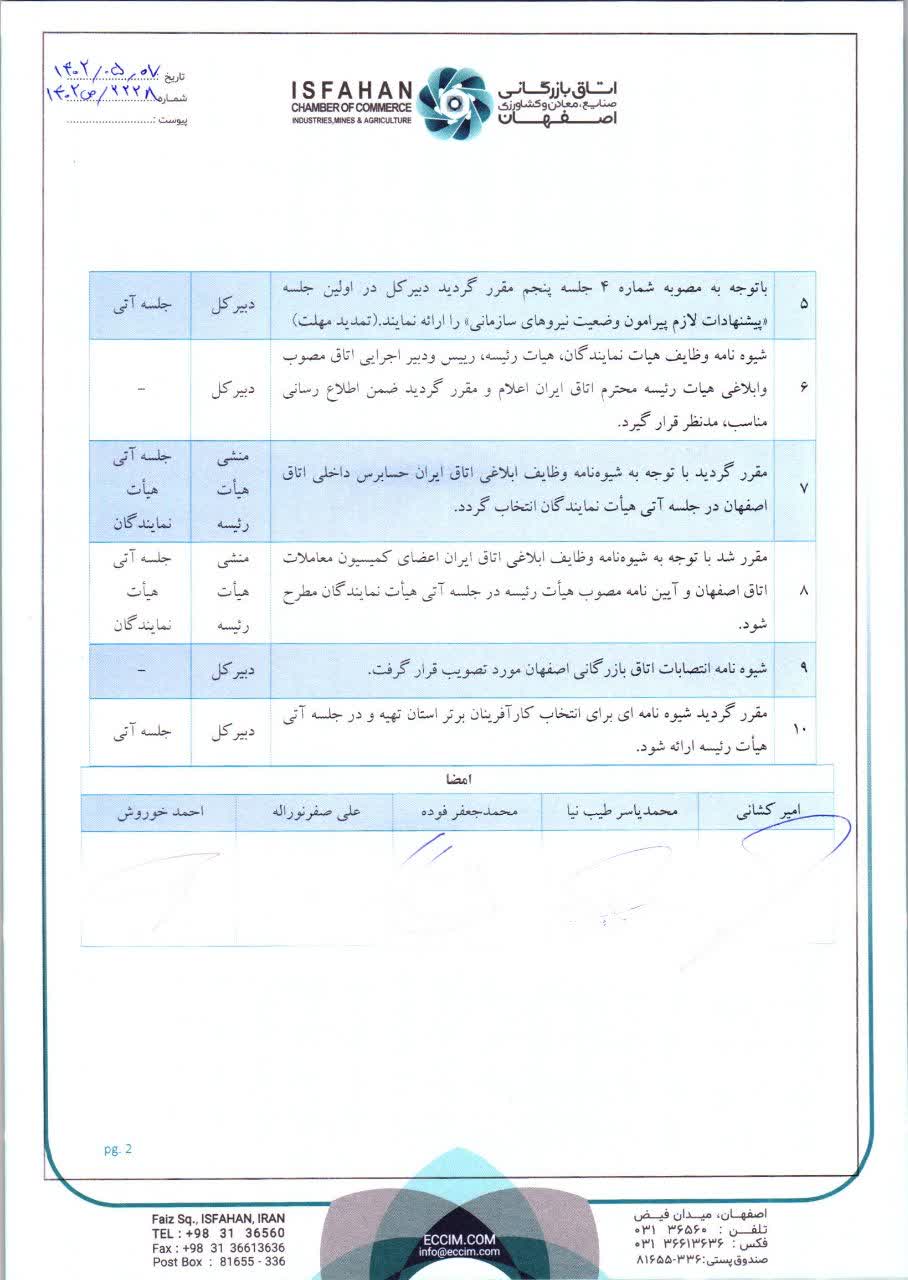 تاریخ ۱۴۰۲/۰۵/۰۷
شماره ۱۴۰۲/ص/۲۲۲۸
پیوست :
ISFAHAN
CHAMBER OF COMMERCE
INDUSTRIES,MINES & AGRICULTURE
اتاق بازرگانی
صنایع، معادن و کشاورزی
اصفهان
۵
باتوجه به مصوبه شماره ۴ جلسه پنجم مقرر گردید دبیرکل در اولین جلسه
«پیشنهادات لازم پیرامون وضعیت نیروهای سازمانی» را ارائه نمایند.(تمدید مهلت)
دبیرکل
جلسه آتی
۶
شیوه نامه وظایف هیات نمایندگان، هیات رئیسه، رییس ودبیر اجرایی اتاق مصوب
وابلاغی هیات رئیسه محترم اتاق ایران اعلام و مقرر گردید ضمن اطلاع رسانی
مناسب، مدنظر قرار گیرد.
دبیرکل
–
۷
مقرر گردید با توجه به شیوه‌نامه وظایف ابلاغی اتاق ایران حسابرس داخلی اتاق
اصفهان در جلسه آتی هیأت نمایندگان انتخاب گردد.
منشی
هیأت
رئیسه
جلسه آتی
هیأت
نمایندگان
۸
مقرر شد با توجه به شیوه‌نامه وظایف ابلاغی اتاق ایران اعضای کمیسیون معاملات
اتاق اصفهان و آیین نامه مصوب هیأت رئیسه در جلسه آتی هیأت نمایندگان مطرح
شود.
منشی
هیأت
رئیسه
جلسه آتی
هیأت
نمایندگان
۹
شیوه نامه انتصابات اتاق بازرگانی اصفهان مورد تصویب قرار گرفت.
دبیرکل
–
۱۰
مقرر گردید شیوه نامه ای برای انتخاب کارآفرینان برتر استان تهیه و در جلسه آتی
هیأت رئیسه ارائه شود.
دبیرکل
جلسه آتی
امضا
امیر کشانی
محمدیاسر طیب نیا
محمدجعفر فوده
علی صفرنوراله
احمد خوروش
pg. 2
Faiz Sq., ISFAHAN, IRAN
TEL : +98 31 36560
Fax : +98 31 36613636
Post Box : 81655 - 336
ECCIM.COM
info@eccim.com
اصفهان، میدان فیض
تلفن : ۳۶۵۶۰ ۰۳۱
فکس : ۳۶۶۱۳۶۳۶ ۰۳۱
صندوق پستی: ۳۳۶-۸۱۶۵۵